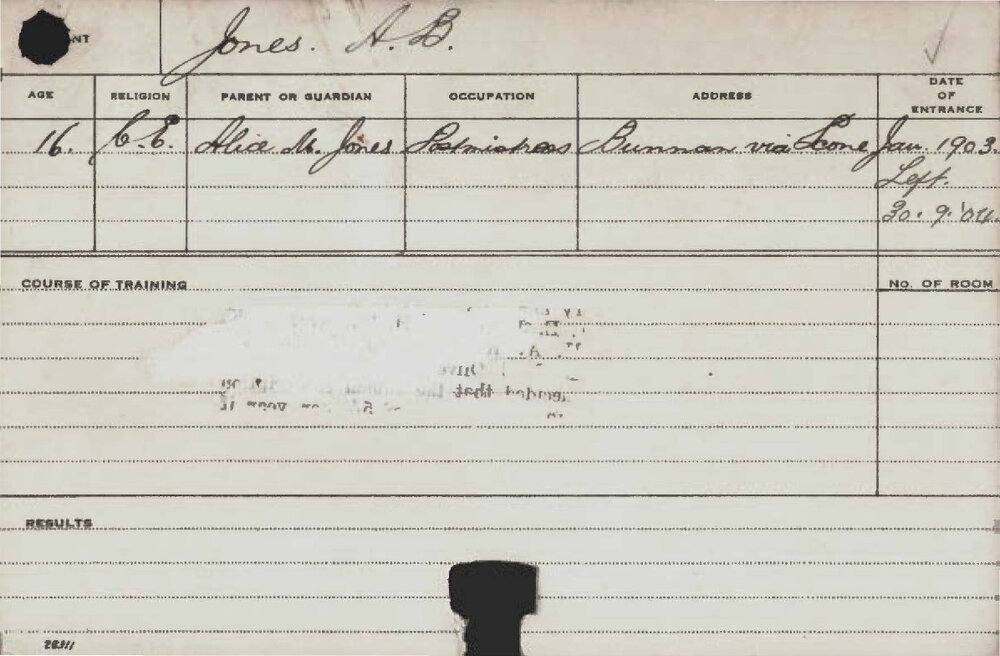 Jones. A. B.
AGE RELIGION PARENT OR GUARDIAN OCCUPATION ADDRESS DATE OF ENTRANCE
16. C.E. Alice M. Jones Postmistress Bunnan via Scone Jan. 1903.
Left.
30. 9. '04.
COURSE OF TRAINING No. OF ROOM
decided that the
RESULTS